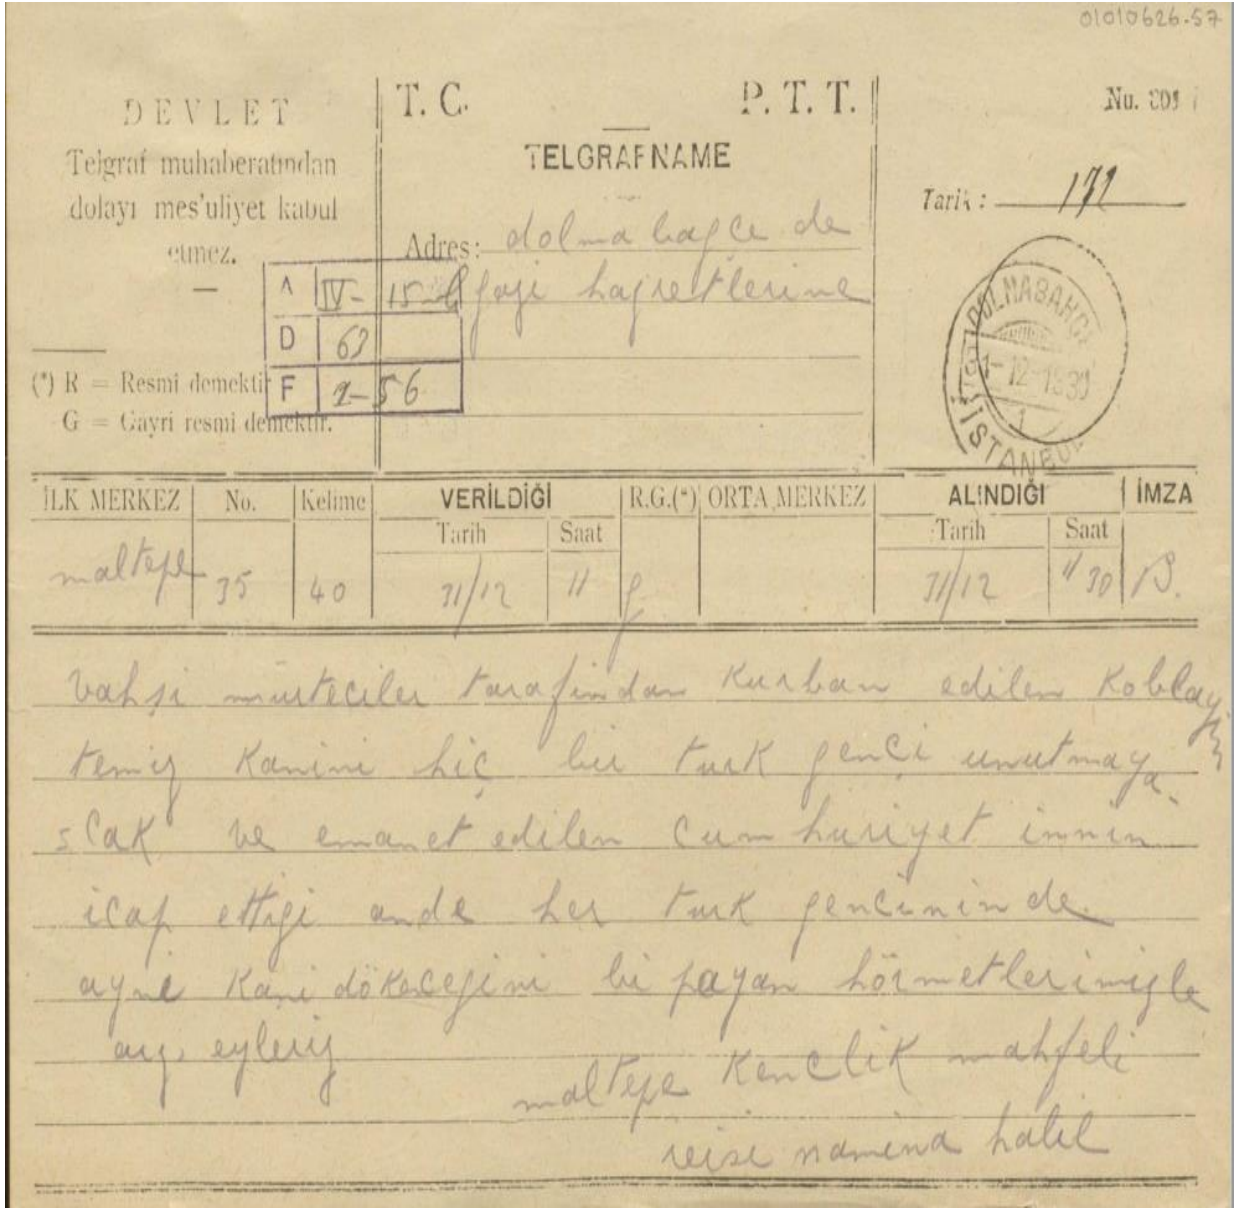 01010626-57
DEVLET
Telgraf muhaberatından
dolayı mes'uliyet kabul
etmez.
(*) R = Resmi demektir
G = Gayri resmi demektir.
T. C. P. T. T.
TELGRAFNAME
Adres: dolma bahçe de
gazi hazretlerine
A IV-15-
D 63
F 2-56
Nu.
Tarik: 172
DOLMABAHÇE
1-12-1930
1
İSTANBUL
İLK MERKEZ No. Kelime VERİLDİĞİ R.G.(*) ORTA MERKEZ ALINDIĞI İMZA
Tarih Saat Tarih Saat
maltepe 35 40 31/12 11 g 31/12 11 30 B.
vahşi mürteciler tarafından kurban edilen koblay
temiz kanini hiç bir turk gençi unutmaya
cak ve emanet edilen cumhuriyet
icap ettigi ande her turk gencininde
ayni kani dökeceğini bi payan hörmetlerimizle
arz eyleriz
maltepe kenclik mahfeli
reisi namina halil